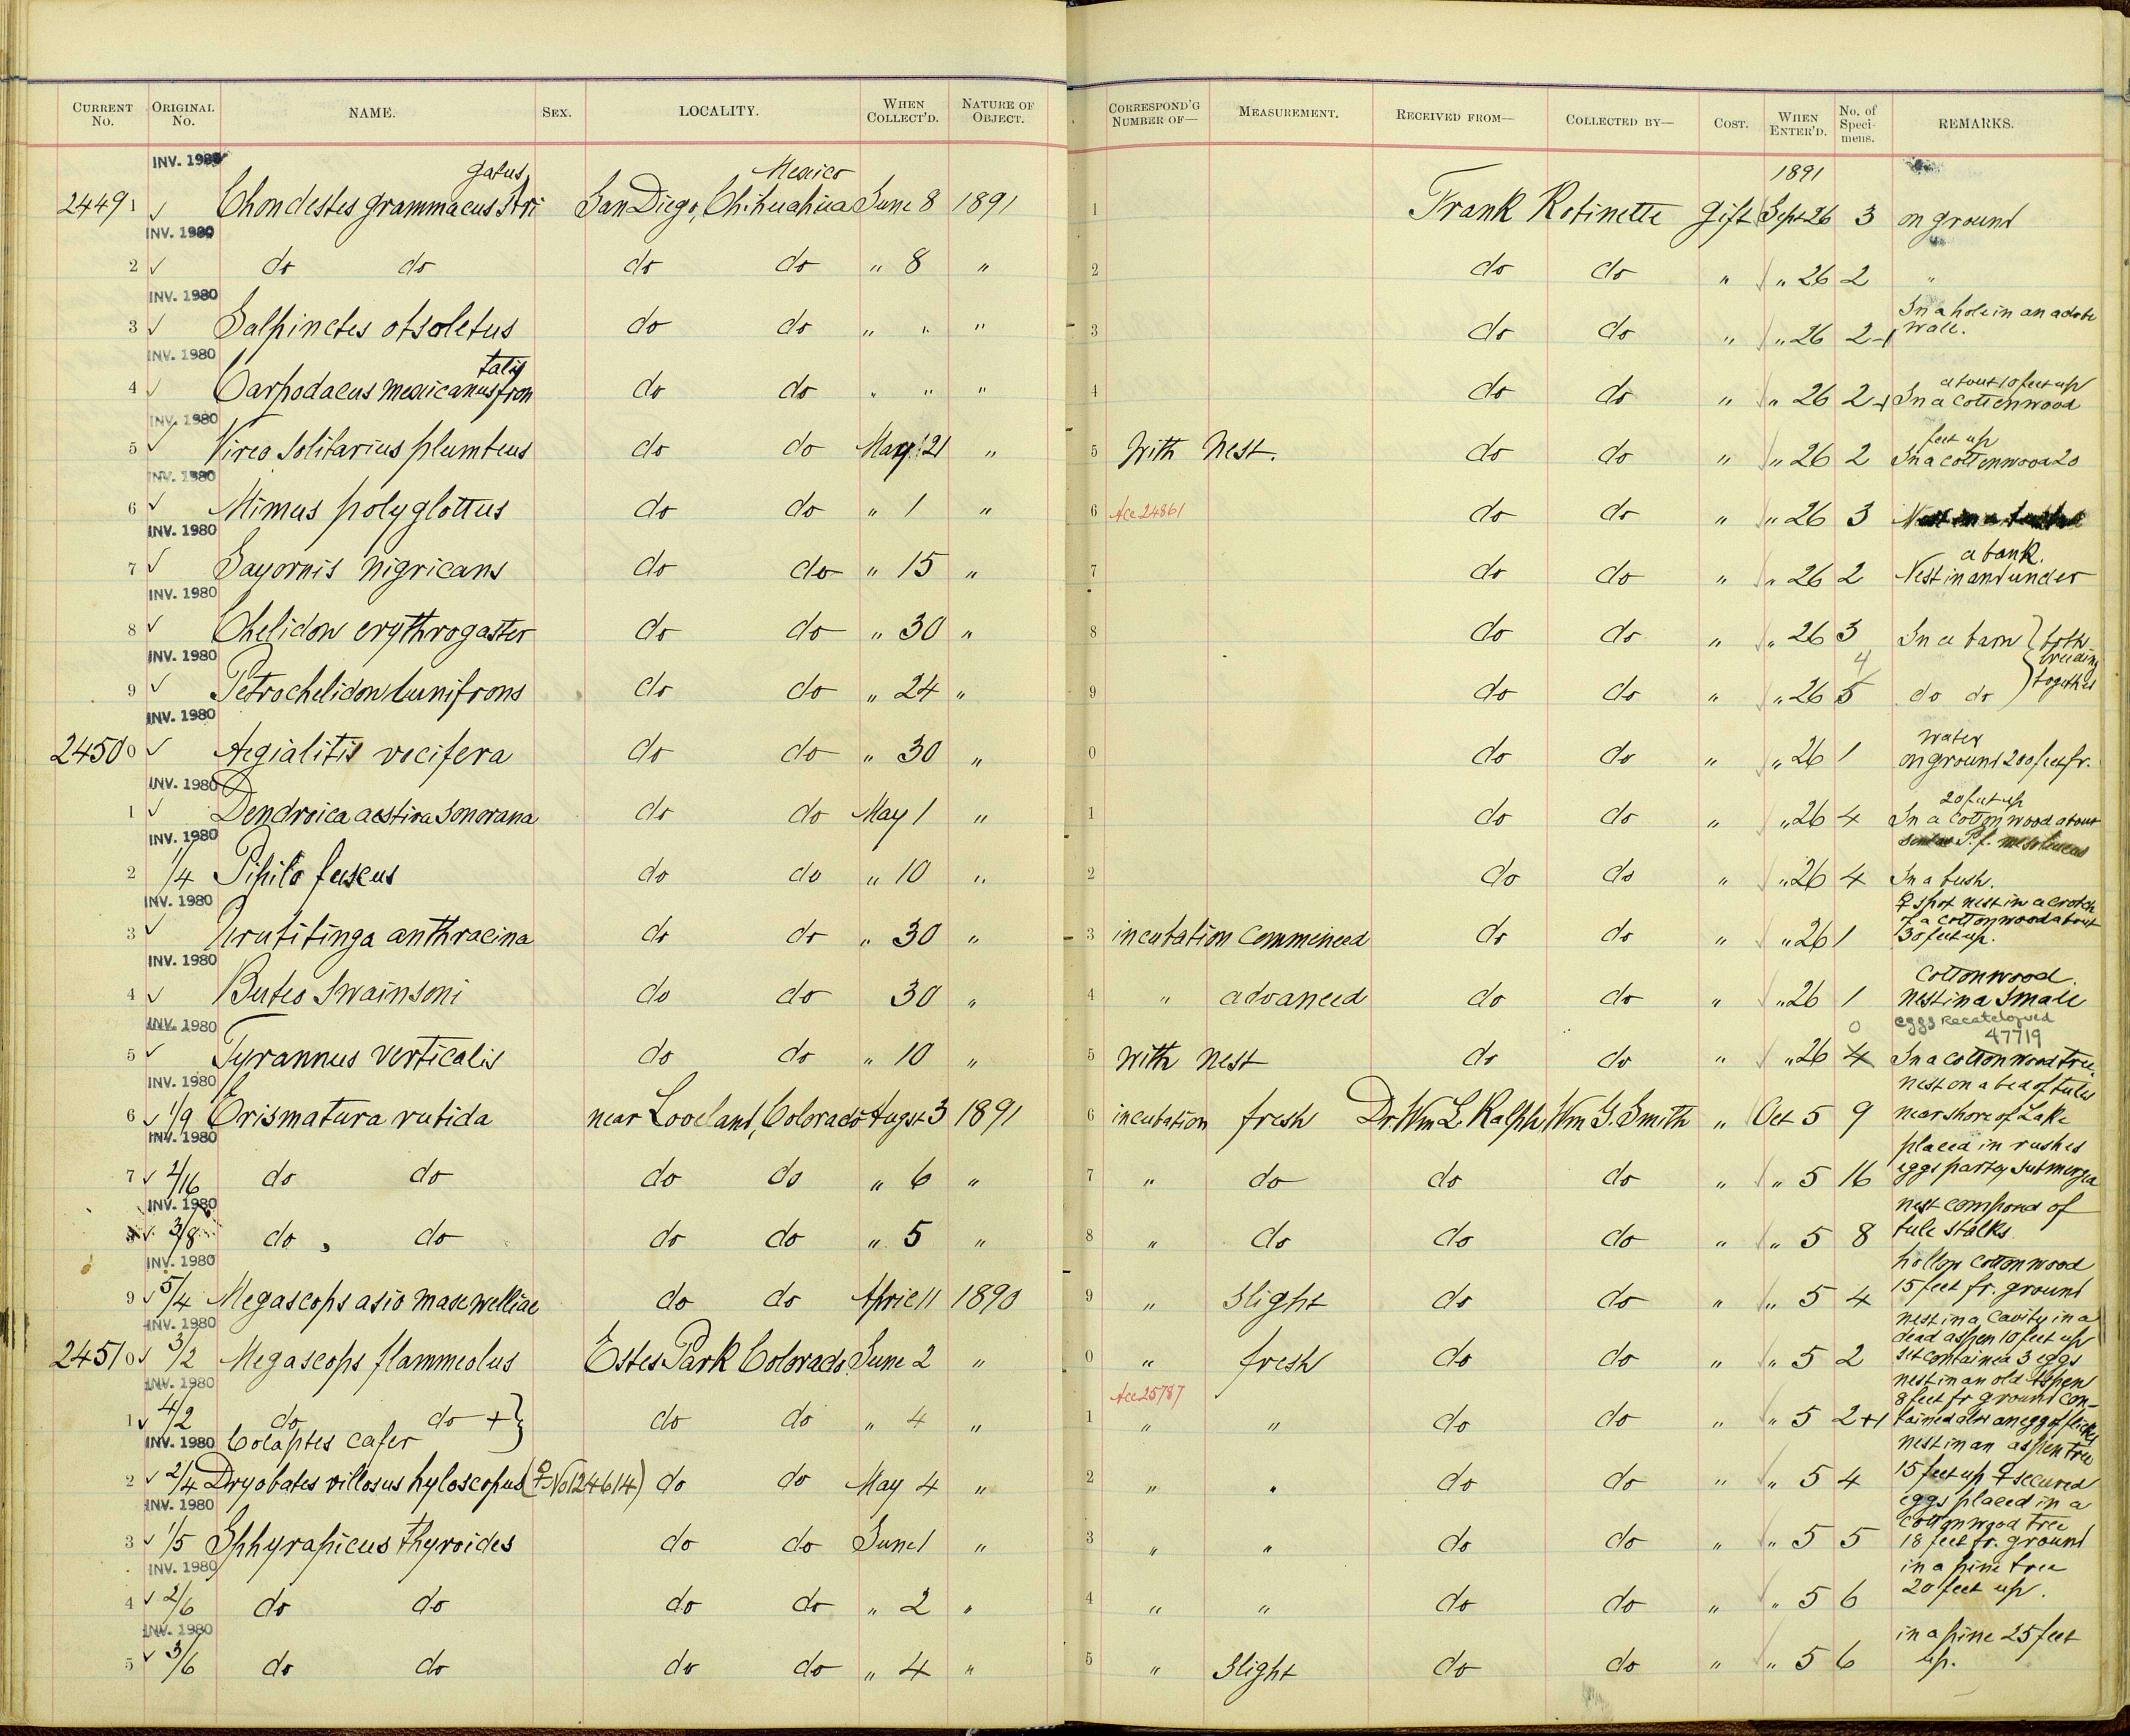 CURRENT No. ORIGINAL No. NAME. SEX. LOCALITY. WHEN COLLECT'D. NATURE OF OBJECT. CORRESPOND'G NUMBER OF— MEASUREMENT. RECEIVED FROM— COLLECTED BY— COST. WHEN ENTER'D. No. of Specimens. REMARKS.
INV. 1980 gatus Mexico 1891
24491 ✓ Chondestes grammacus Stri San Diego, Chihuahua June 8 1891 1 Frank Robinette Gift Sept 26 3 on ground
INV. 1980
2 ✓ do do do do " 8 " 2 do do " " 26 2 "
INV. 1980 In a hole in an adobe
3 ✓ Salpinctes obsoletus do do " " " 3 do do " " 26 2-1 wall.
INV. 1980 talis about 10 feet up
4 ✓ Carpodacus mexicanus fron do do " " " 4 do do " " 26 2-1 In a cottenwood
INV. 1980 feet up
5 ✓ Vireo solitarius plumbeus do do May 21 " 5 With Nest. do do " " 26 2 In a cottenwood 20
INV. 1980
6 ✓ Mimus polyglottus do do " 1 " 6 Acc 24861 do do " " 26 3
INV. 1980 a bank.
7 ✓ Sayornis nigricans do do " 15 " 7 do do " " 26 2 Nest in and under
INV. 1980
8 ✓ Chelidon erythrogaster do do " 30 " 8 do do " " 26 3 In a barn } both breeding together
INV. 1980 4
9 ✓ Petrochelidon lunifrons do do " 24 " 9 do do " " 26 5 do do
INV. 1980 water
24500 ✓ Aegialitis vocifera do do " 30 " 0 do do " " 26 1 on ground 200 feet fr.
INV. 1980 20 feet up
1 ✓ Dendroica aestiva Sonorana do do May 1 " 1 do do " " 26 4 In a cottonwood about
INV. 1980 P. f. mesoleucus
2 1/4 Pipilo fuscus do do " 10 " 2 do do " " 26 4 In a bush.
INV. 1980 ♀ shot nest in a crotch of a cottonwood about
3 ✓ Urubitinga anthracina do do " 30 " 3 incubation commenced do do " " 26 1 30 feet up.
INV. 1980 Cottonwood.
4 ✓ Buteo Swainsoni do do 30 " 4 " advanced do do " " 26 1 nest in a small
INV. 1980 0 eggs Recatalogued 47719
5 ✓ Tyrannus verticalis do do " 10 " 5 With nest do do " " 26 4 In a cottonwood tree.
INV. 1980 nest on a bed of tules
6 ✓ 1/9 Erismatura rubida near Loveland, Colorado Augst 3 1891 6 incubation fresh Dr. Wm L. Ralph, Wm G. Smith " Oct 5 9 near shore of Lake
INV. 1980 placed in rushes
7 ✓ 2/16 do do do do " 6 " 7 " do do do " " 5 16 eggs partly submerged
INV. 1980 nest composed of
✓ 3/8 do do do do " 5 " 8 " do do do " " 5 8 tule stalks.
INV. 1980 hollow cottonwood
9 ✓ 5/4 Megascops asio maxwelliae do do April 11 1890 9 " Slight do do " " 5 4 15 feet fr. ground
INV. 1980 nest in a cavity in a dead aspen 10 feet up
24510 ✓ 3/2 Megascops flammeolus Estes Park Colorado. June 2 " 0 " fresh do do " " 5 2 set contained 3 eggs
INV. 1980 Acc 25787 nest in an old Aspen 8 feet fr ground con-
1 ✓ 4/2 do do + } do do " 4 " 1 " " do do " " 5 2+1 tained also an egg of flicker
INV. 1980 Colaptes cafer nest in an aspen tree
2 ✓ 2/4 Dryobates villosus hyloscopus (♀ No 124614) do do May 4 " 2 " " do do " " 5 4 15 feet up ♀ secured
INV. 1980 eggs placed in a cottonwood tree
3 ✓ 1/5 Sphyrapicus thyroides do do June 1 " 3 " " do do " " 5 5 18 feet fr. ground
INV. 1980 in a pine tree
4 ✓ 2/6 do do do do " 2 " 4 " " do do " " 5 6 20 feet up.
INV. 1980 in a pine 25 feet
5 ✓ 3/6 do do do do " 4 " 5 " Slight do do " " 5 6 up.